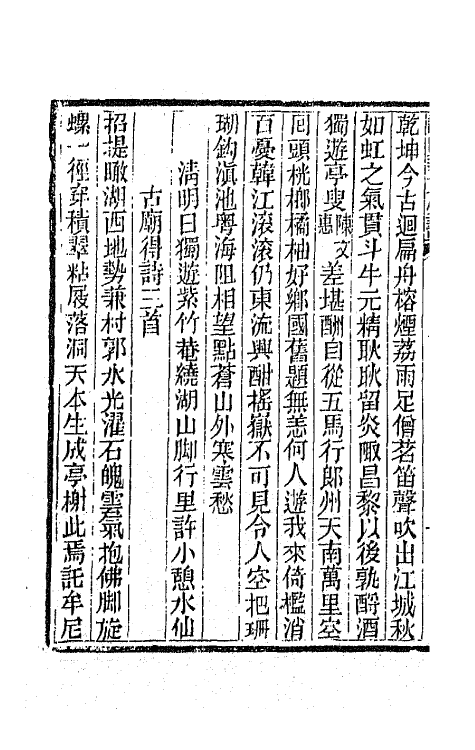 乾坤今古迴扁舟榕煙荔雨足僧茗笛聲吹出江城秋
如虹之氣貫斗牛元精耿耿留炎陬昌黎以後孰酹酒
獨遊亭叟陳文惠差堪酬自從五馬行郞州天南萬里空
囘頭桄榔橘柚好鄉國舊題無恙何人遊我來倚檻消
百憂韓江滾滾仍東流興酣搖嶽不可見令人空把珊
瑚鈎滇池粵海阻相望點蒼山外寒雲愁
淸明日獨遊紫竹菴繞湖山脚行里許小憩水仙
古廟得詩三首
招提瞰湖西地勢兼村郭水光濯石魄雲氣抱佛脚旋
螺一徑穿積翠粘屐落洞天本生成亭榭此焉託牟尼